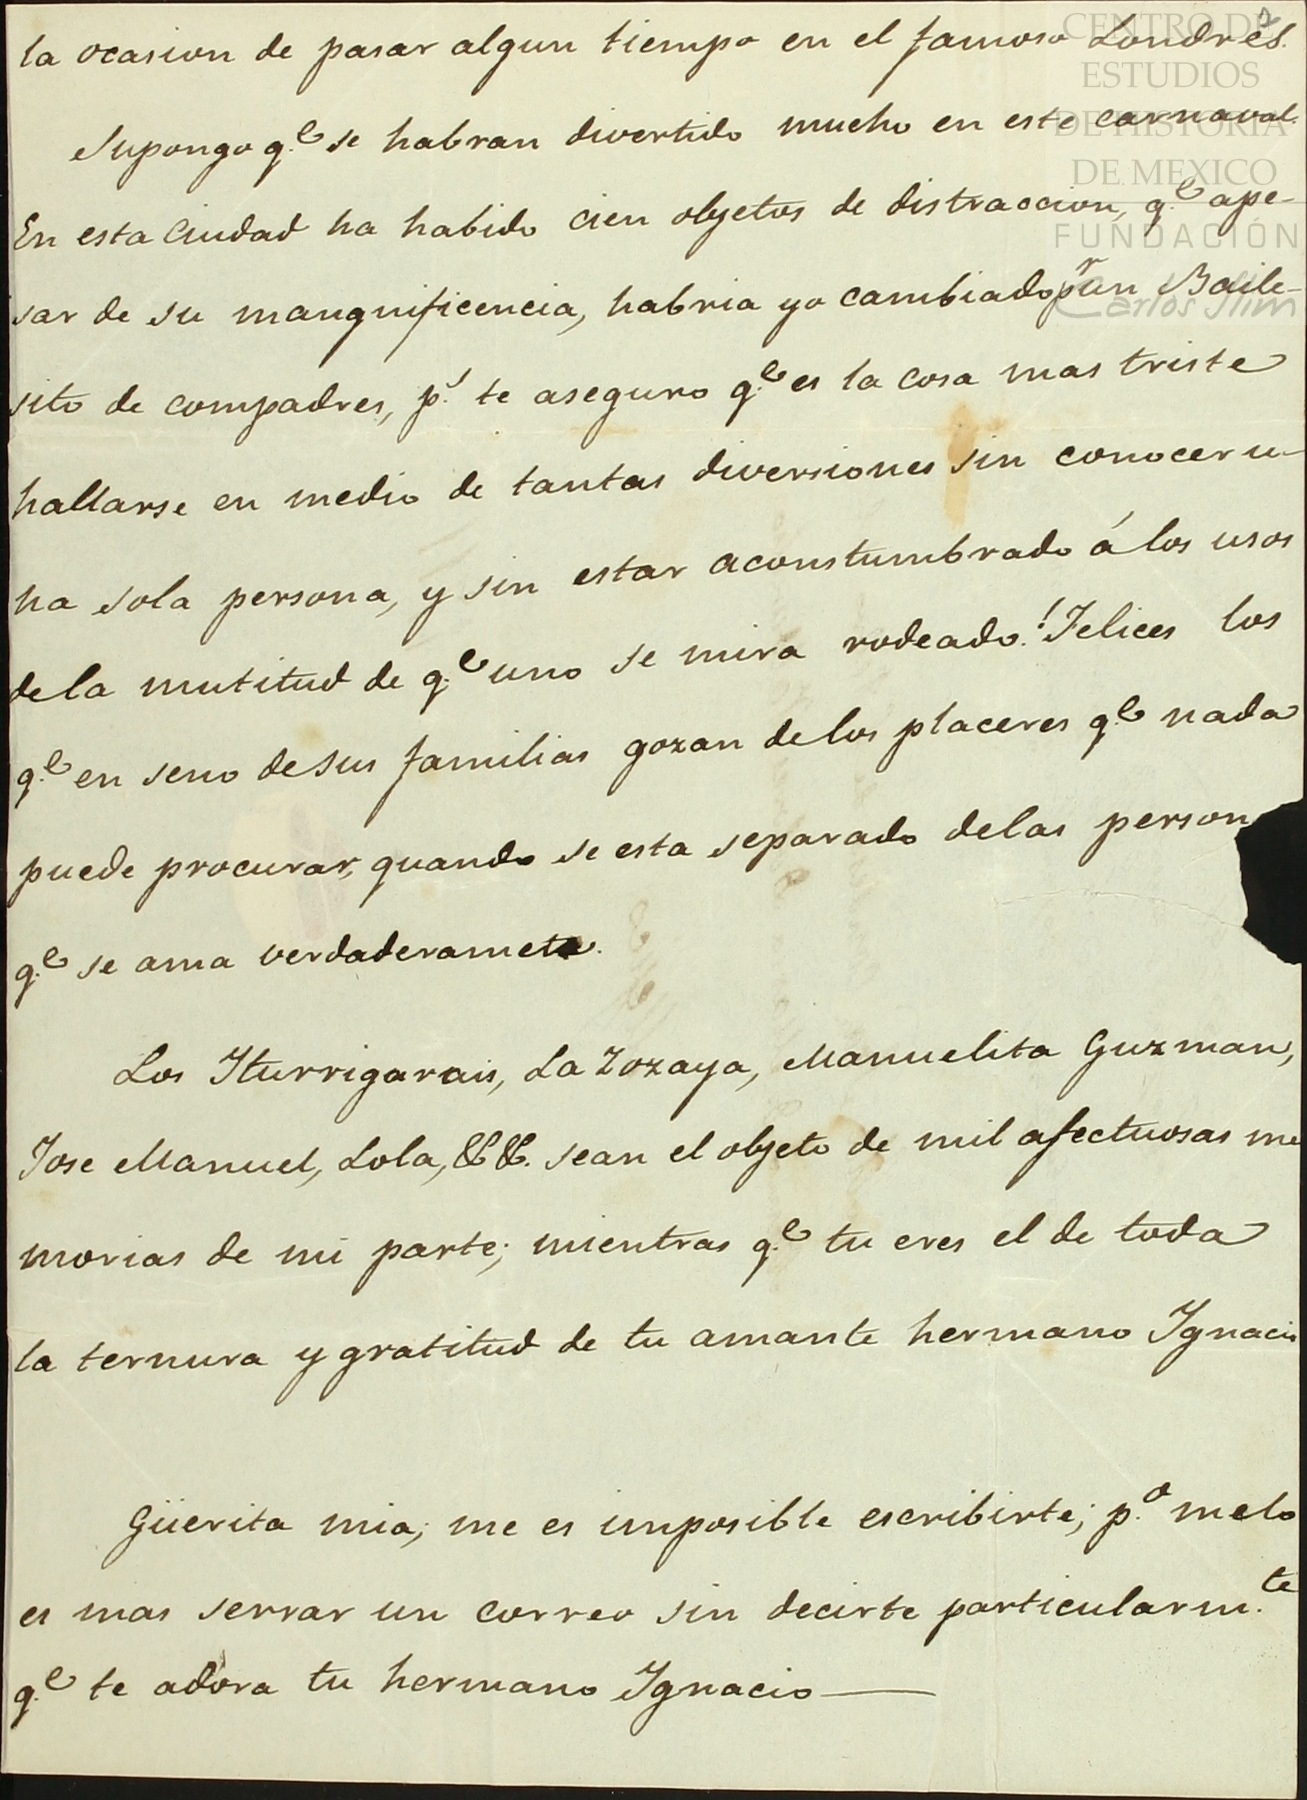 la ocasion de pasar algun tiempo en el famoso Londres.
Supongo q.e se habran divertido mucho en este carnaval.
En esta Ciudad ha habido cien objetos de distraccion, q.e ape-
sar de su mangnificencia, habria yo cambiado p.r un Baile-
sito de compadres, p.s te aseguro q.e es la cosa mas triste
hallarse en medio de tantas diversiones sin conocer u-
na sola persona, y sin estar aconstumbrado á los usos
de la mutitud de q.e uno se mira rodeado! Felices los
q.e en seno de sus familias gozan de los placeres q.e nada
puede procurar, quando se esta separado de las person
q.e se ama verdaderamete.
Los Iturrigarais, La Zozaya, Manuelita Guzman,
Jose Manuel, Lola, && sean el objeto de mil afectuosas me
morias de mi parte; mientras q.e tu eres el de toda
la ternura y gratitud de tu amante hermano Ignacio
Güerita mia; me es imposible escribirte; p.o me lo
es mas serrar un correo sin decirte particularm.te
q.e te adora tu hermano Ignacio
CENTRO DE
ESTUDIOS
DE HISTORIA
DE MEXICO
FUNDACIÓN
Carlos Slim